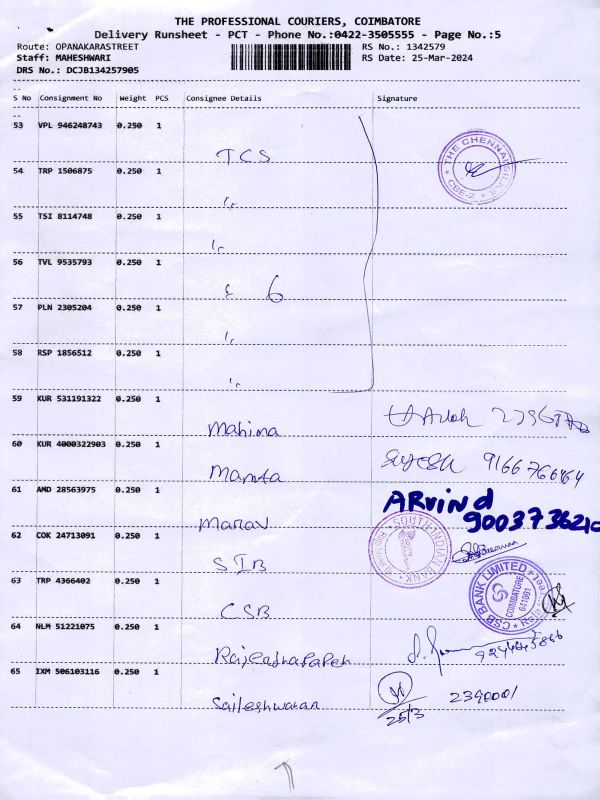 THE PROFESSIONAL COURIERS, COIMBATORE
Delivery Runsheet - PCT - Phone No.:0422-3505555 - Page No.:5
Route: OPANAKARASTREET RS No.: 1342579
Staff: MAHESHWARI RS Date: 25-Mar-2024
DRS No.: DCJB134257905
S No Consignment No Weight PCS Consignee Details Signature
53 VPL 946248743 0.250 1 TCS
THE CHENNAI SILKS CBE-2
54 TRP 1506875 0.250 1 "
55 TSI 8114748 0.250 1 "
56 TVL 9535793 0.250 1 6
57 PLN 2305204 0.250 1 "
58 RSP 1856512 0.250 1 "
59 KUR 531191322 0.250 1 Mahima
60 KUR 4000322903 0.250 1 Mamta 9166766464
61 AMD 28563975 0.250 1 Manav ARvind
9003736210
62 COK 24713091 0.250 1 SIB SOUTH INDIAN BANK
63 TRP 4366402 0.250 1 CSB CSB BANK LIMITED COIMBATORE 641001
64 NLM 51221075 0.250 1
65 IXM 506103116 0.250 1 Saileshwaran 25/3 2390001